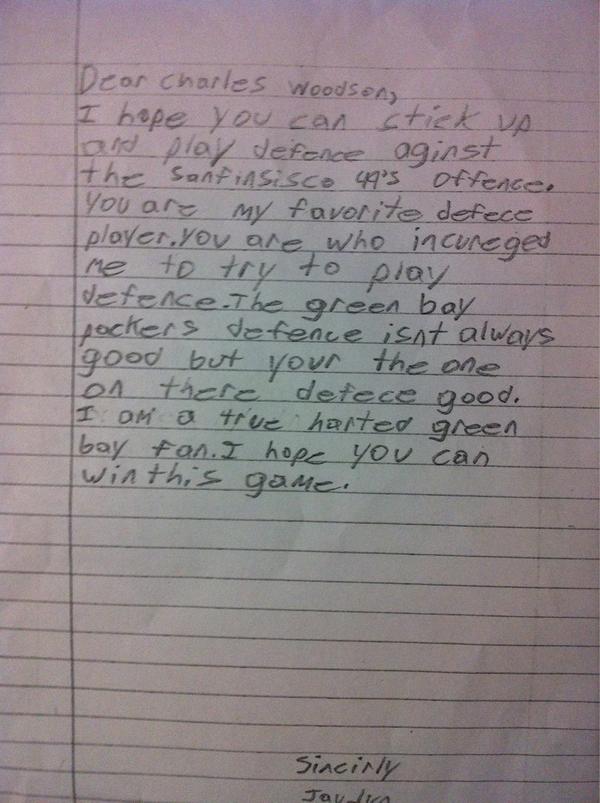 Dear Charles Woodson,
I hope you can stick up
and play defence aginst
the Sanfinsisco 49's offence.
You are my favorite defece
player.you are who incureged
me to try to play
defence.The green bay
packers defence isnt always
good but your the one
on there defece good.
I am a true harted green
bay fan.I hope you can
win this game.
Sincirly